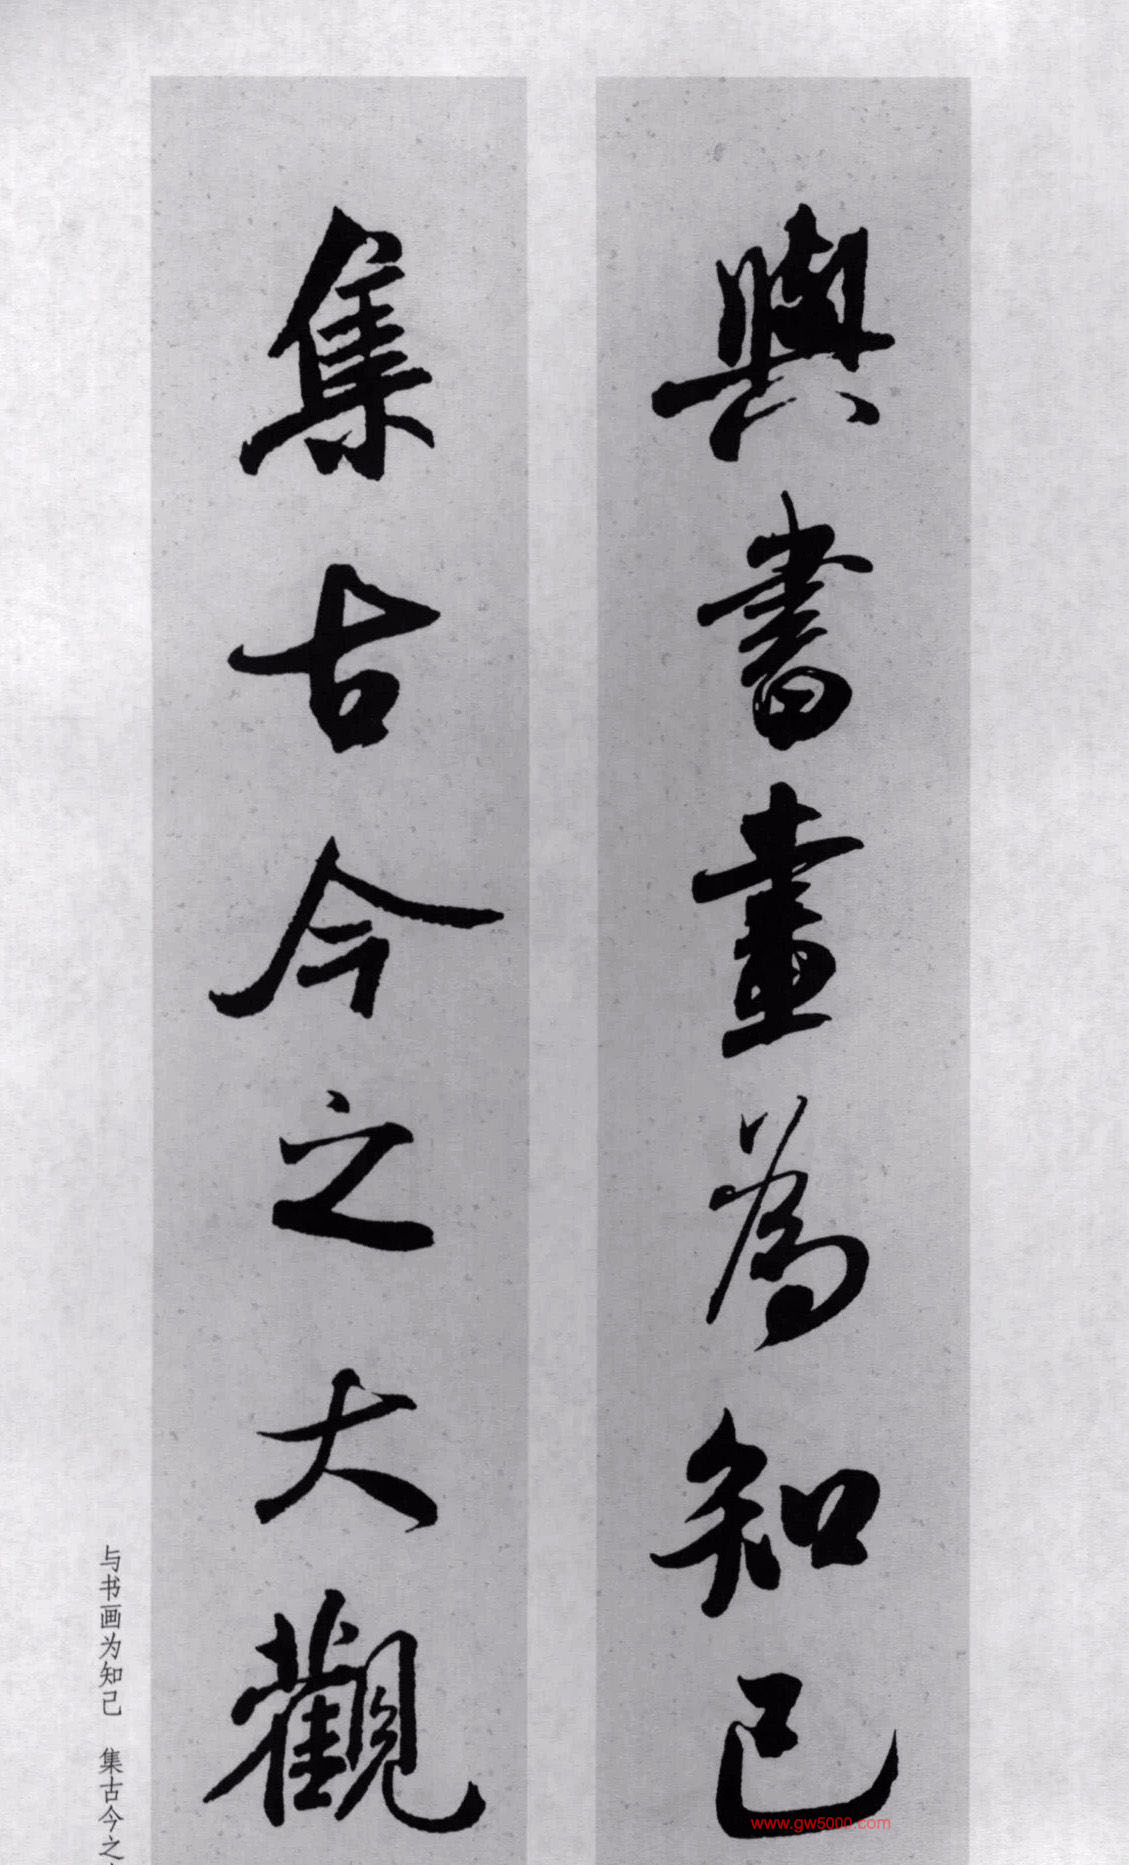 與書畫為知己
集古今之大觀
与书画为知己 集古今之
www.gw5000.com